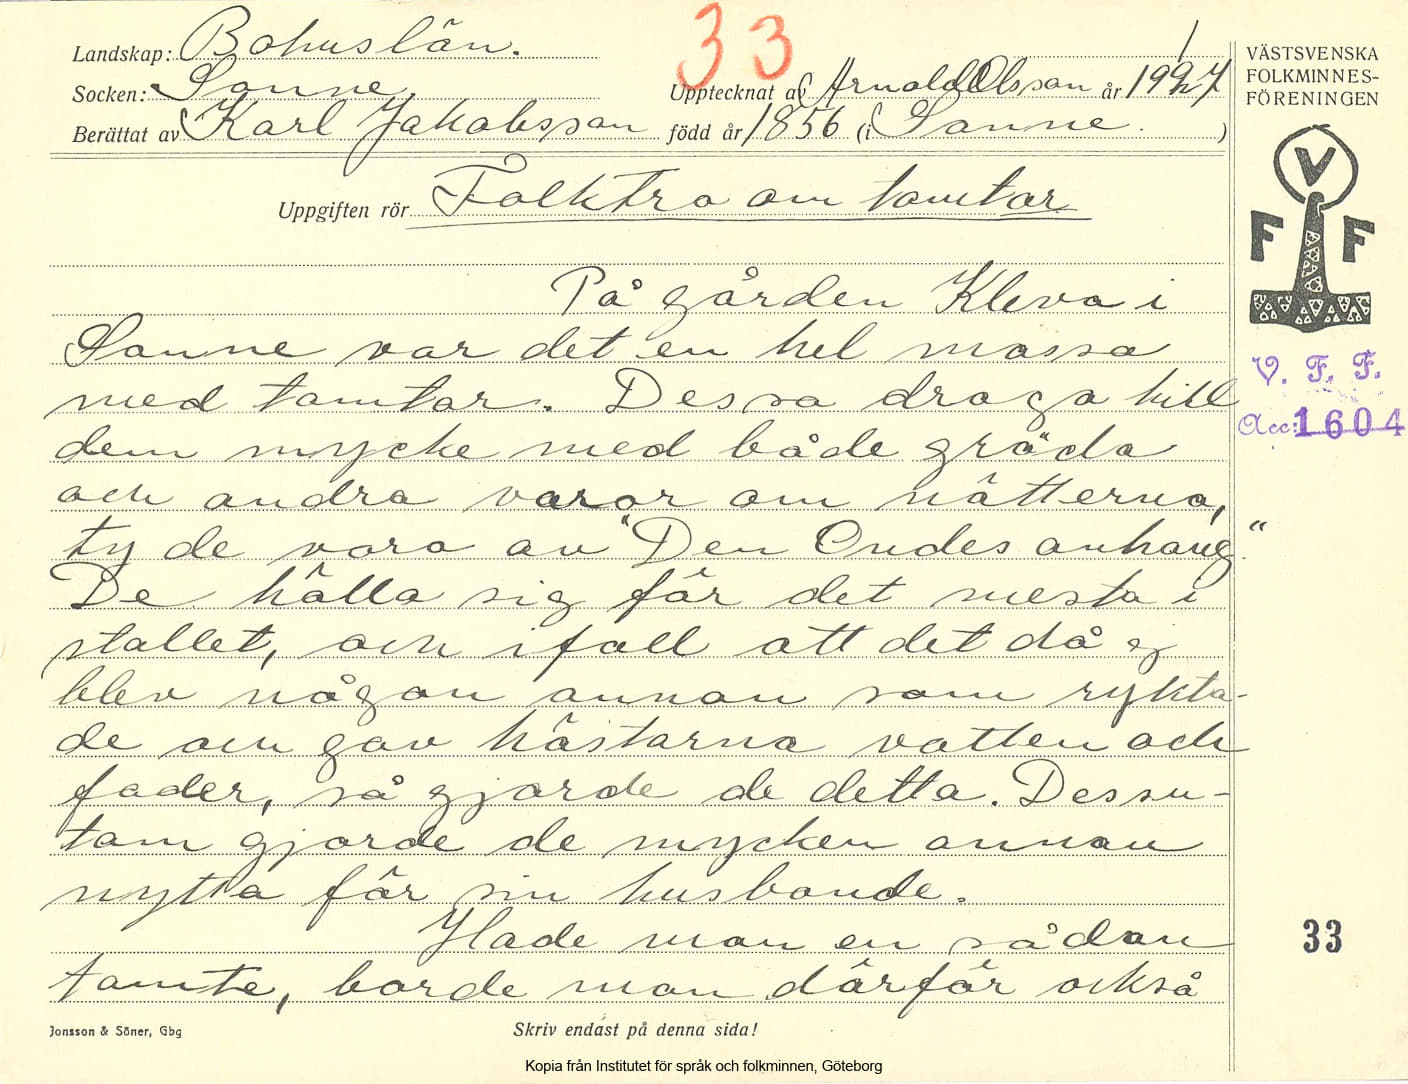 33
Landskap: Bohuslän.
Socken: Sanne.
Upptecknat av Arnold Olsson år 1927
Berättat av Karl Jakobsson född år 1856 (i Sanne. )
Uppgiften rör Folktro om tomtar
VÄSTSVENSKA
FOLKMINNES-
FÖRENINGEN
V
F F
V. F. F.
Acc: 1604
På gården Kleva i
Sanne var det en hel massa
med tomtar. Dessa droga till
dem mycke med både gröda
och andra varor om nätterna,
ty de voro av "Den Ondes anhang."
De hålla sig för det mesta i
stallet, och ifall att det då ej
blev någon annan som rykta-
de och gav hästarna vatten och
foder, så gjorde de detta. Dessu-
tom gjorde de mycken annan
nytta för sin husbonde.
Hade man en sådan
tomte, borde man därför också
33
Jonsson & Söner, Gbg
Skriv endast på denna sida!
Kopia från Institutet för språk och folkminnen, Göteborg